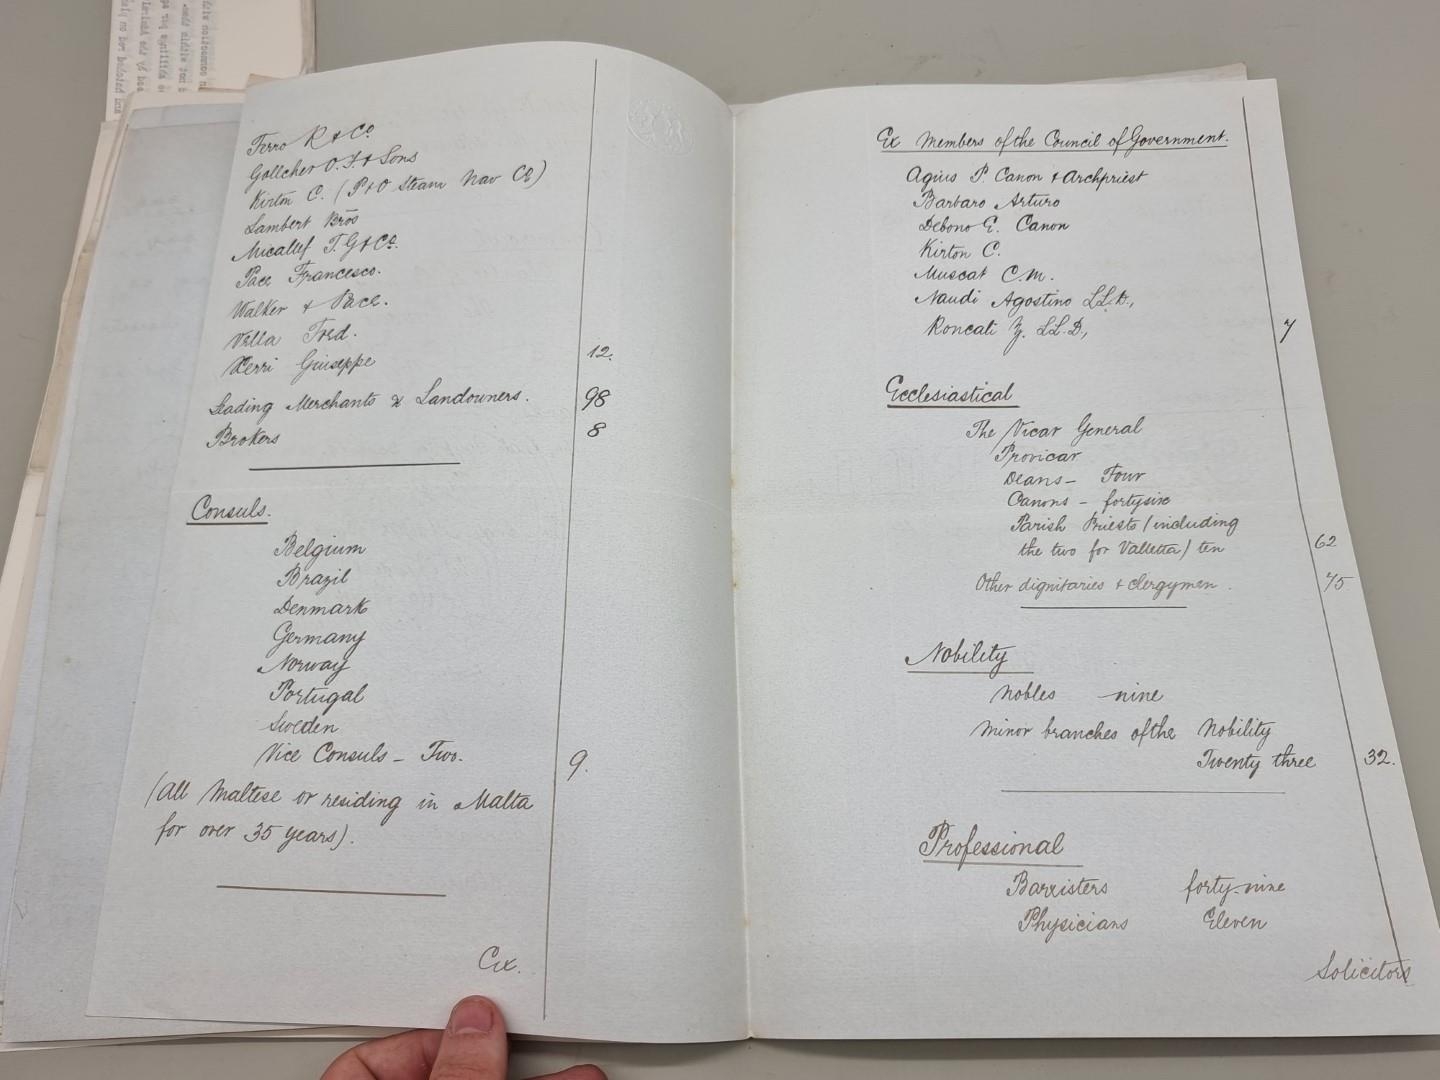 Ferro R & Co
Gollcher O. F. & Sons
Kirton C. (P & O Steam Nav Co)
Lambert Bros
Micallef T. G & Co.
Pace Francesco.
Walker & Pace.
Vella Fred.
Xerri Giuseppe 12.
Leading Merchants & Landowners. 98
Brokers 8
Consuls.
Belgium
Brazil
Denmark
Germany
Norway
Portugal
Sweden
Vice Consuls - Two. 9.
(All Maltese or residing in Malta
for over 35 years).
Ex.
Ex Members of the Council of Government.
Agius P. Canon & Archpriest
Barbaro Arturo
Debono E. Canon
Kirton C.
Muscat C.M.
Naudi Agostino LL.D.,
Roncali Z. LL.D., 7
Ecclesiastical
The Vicar General
Provicar
Deans - Four
Canons - fortysix
Parish Priests (including
the two for Valletta) ten 62
Other dignitaries & clergymen. 75
Nobility
Nobles nine
Minor branches of the Nobility
Twenty three 32.
Professional
Barristers forty-nine
Physicians Eleven
Solicitors